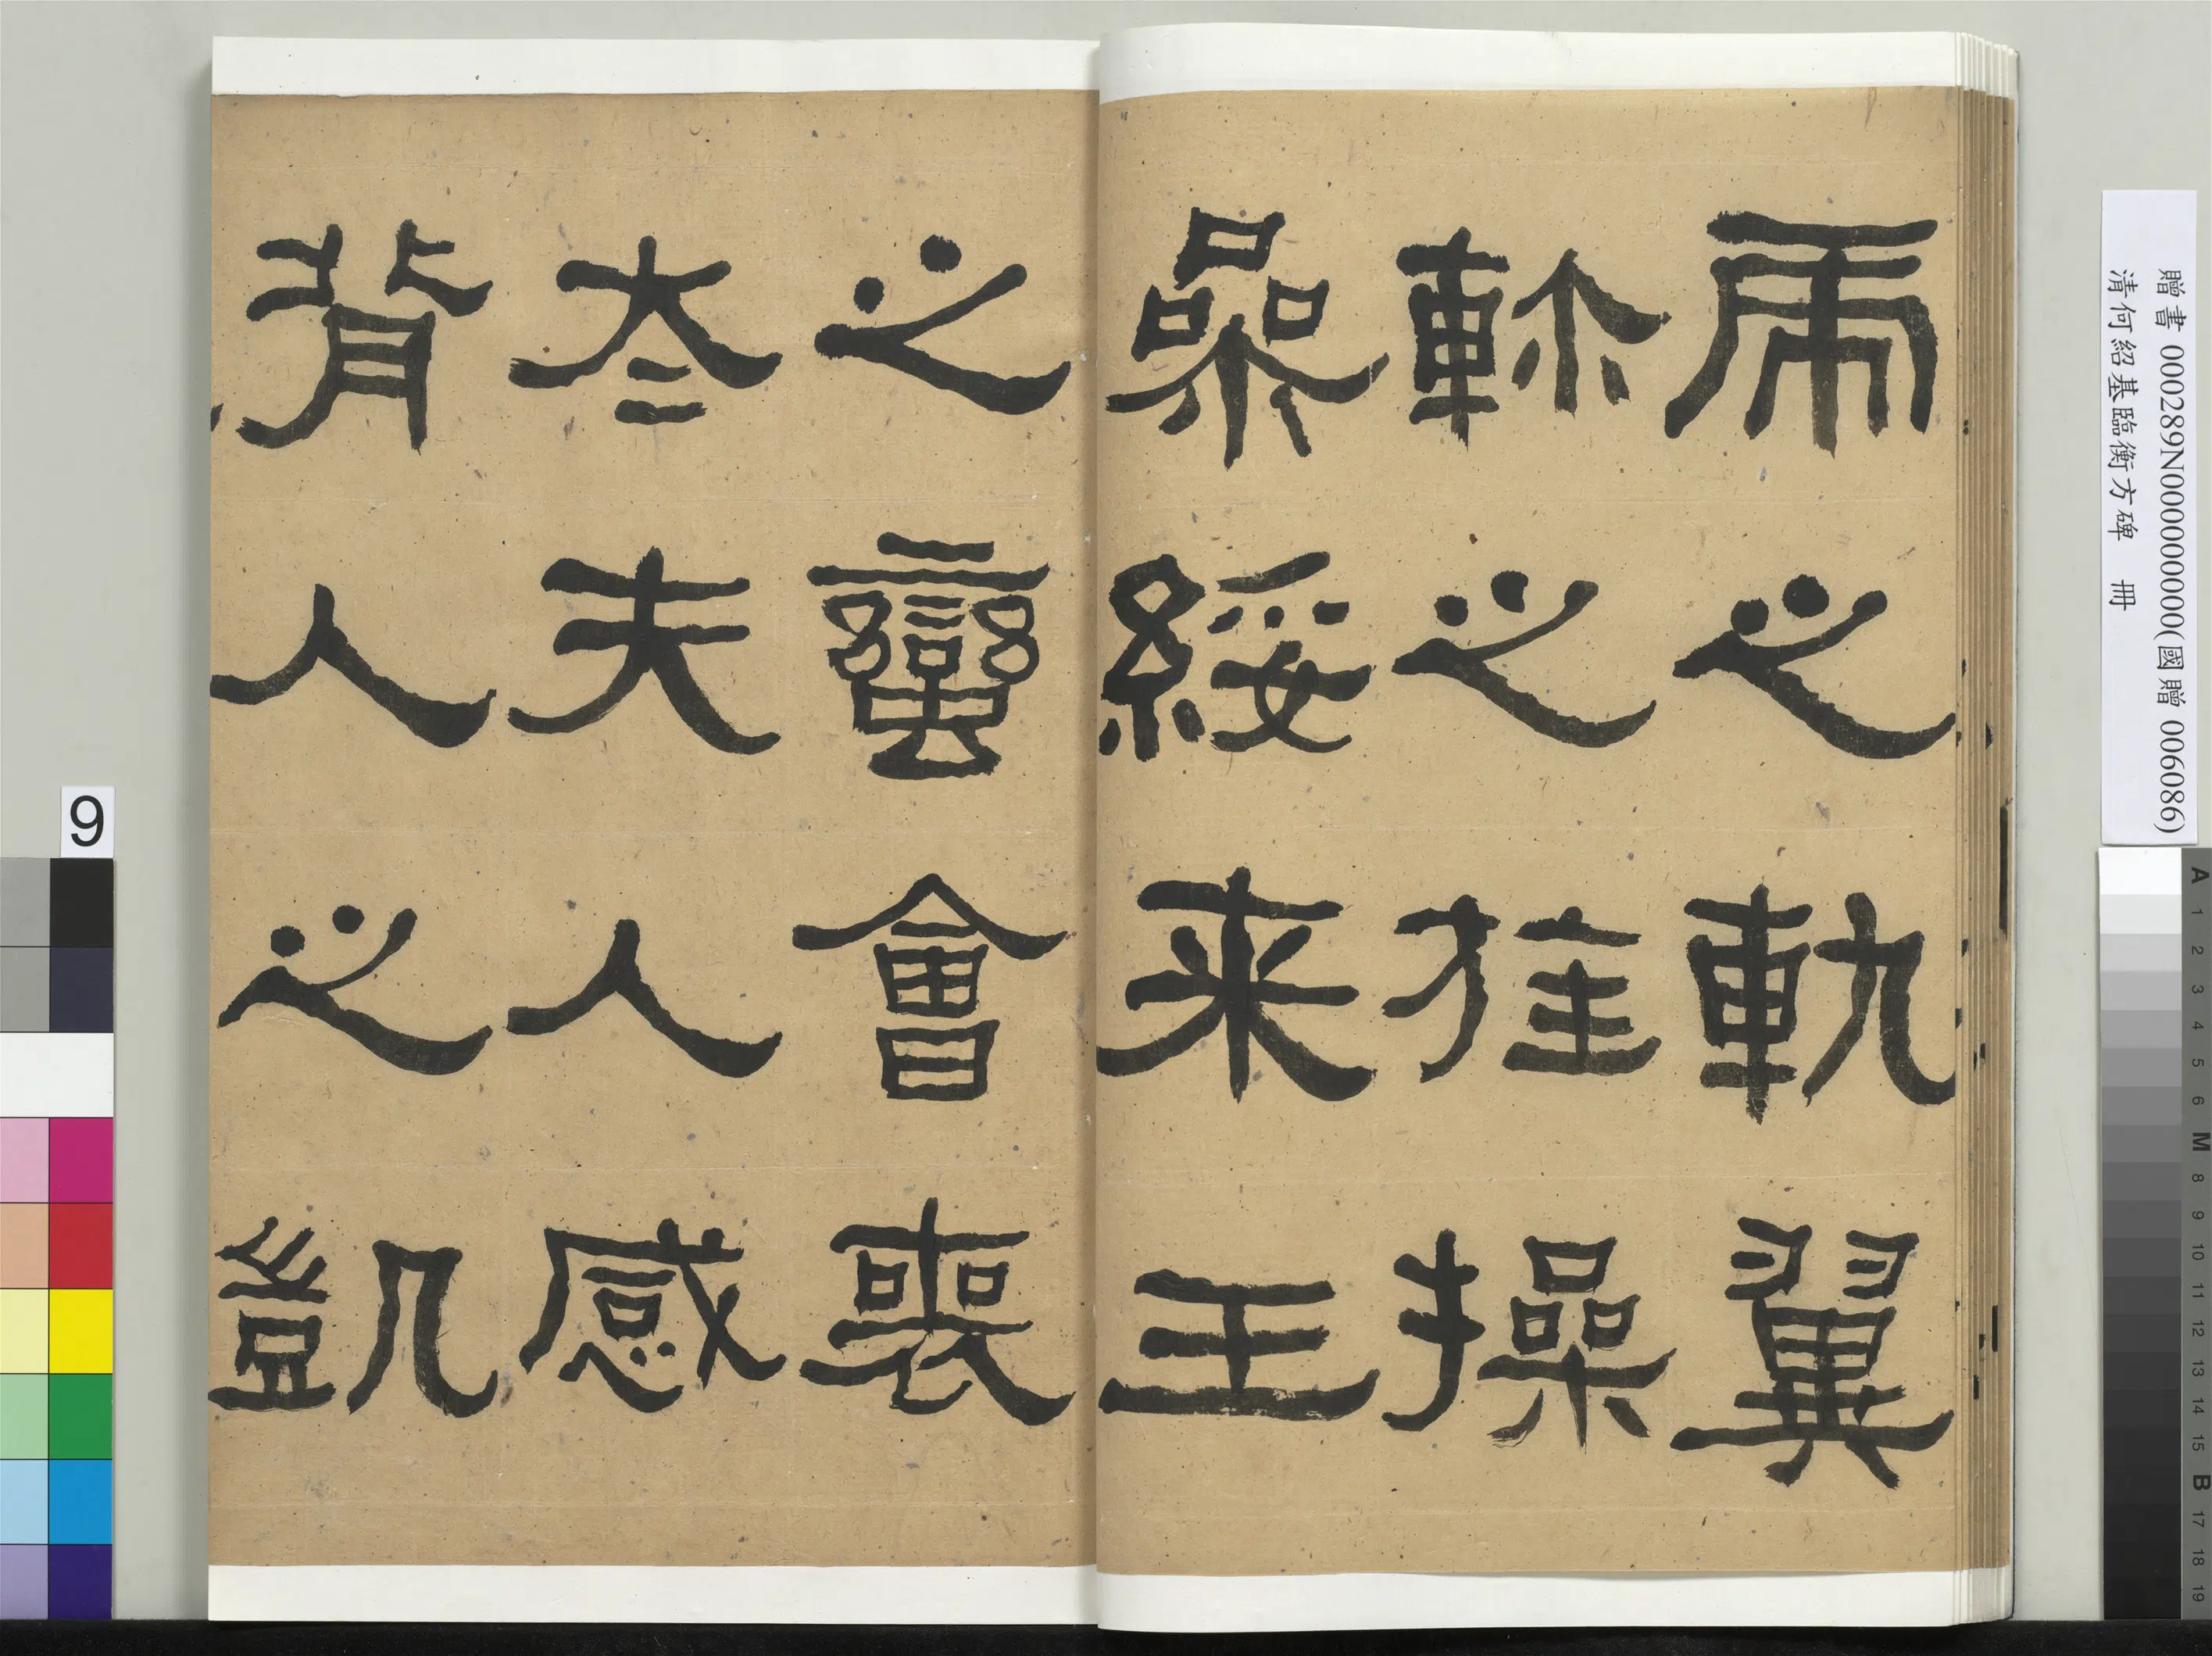 虎之軌翼
軫之旌操
參綏来王
之蠻會喪
太夫人感
背人之凱
贈書 000289N000000000(國贈 006086)
清何紹基臨衡方碑 冊
9
A 1 2 3 4 5 6 M 8 9 10 11 12 13 14 15 B 17 18 19